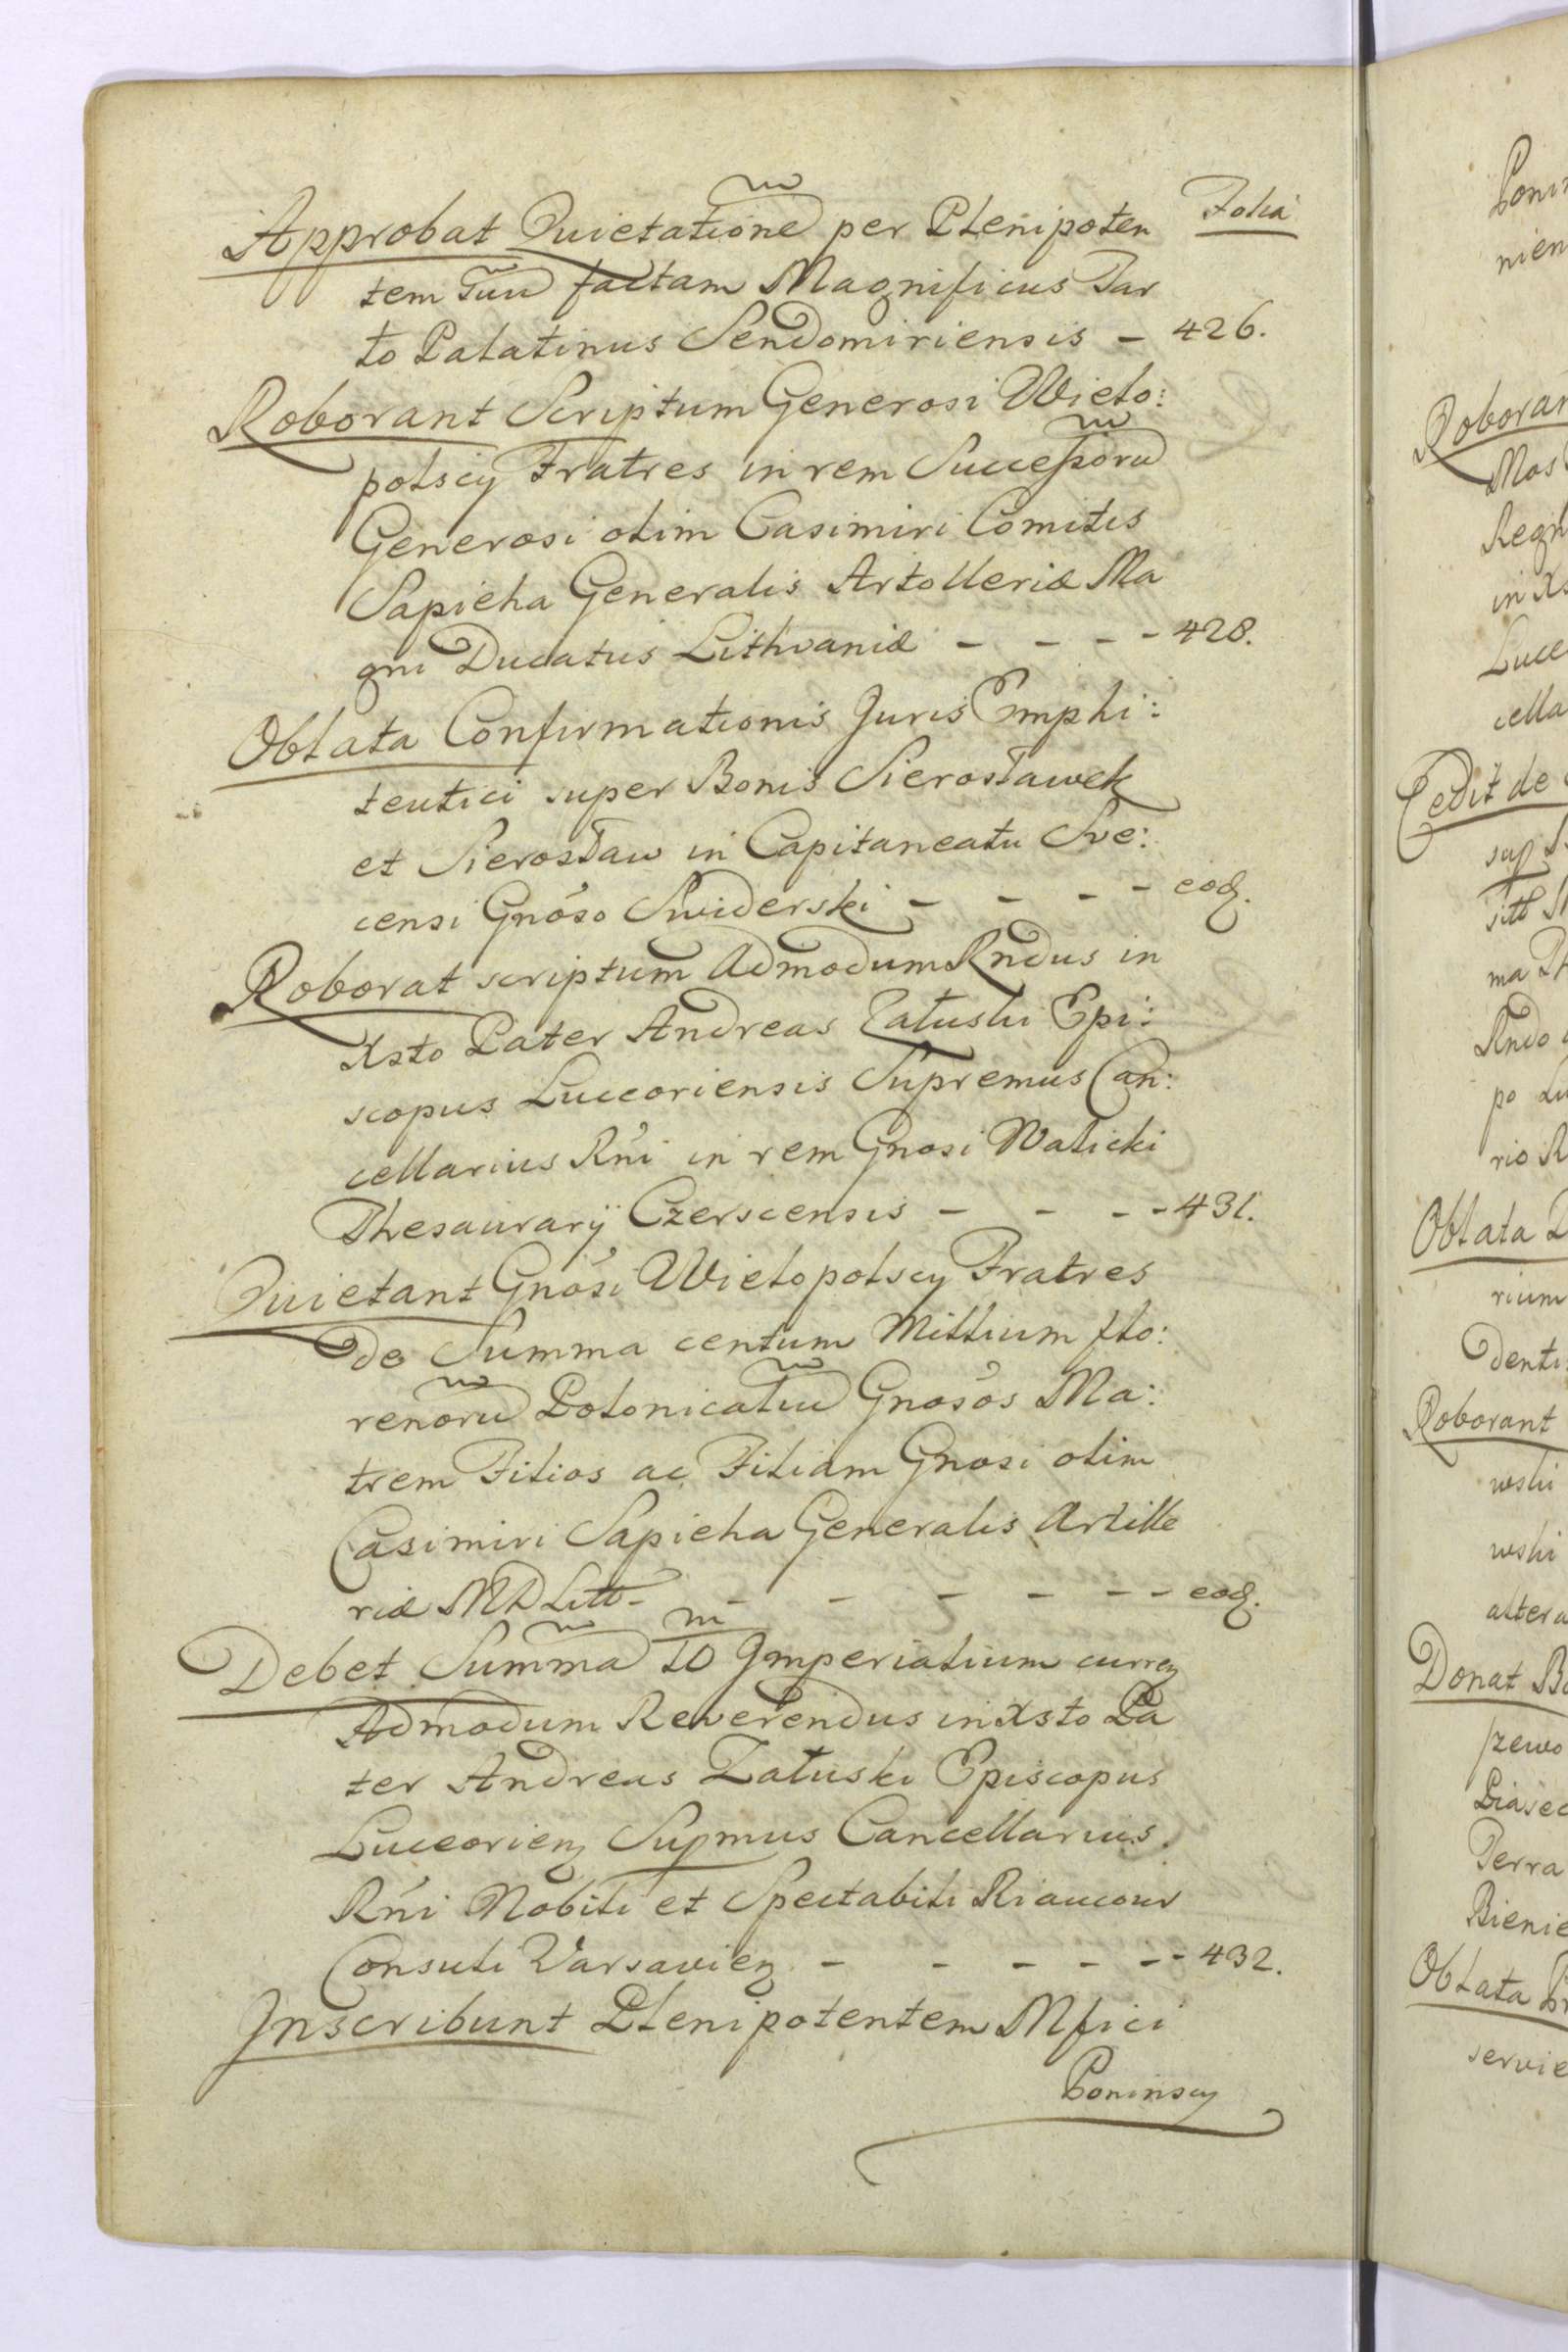 Folia
Approbat Quietatione per Plenipoten
tem Suu factam Magnificus Tar
ło Palatinus Sendomiriensis - 426.
Roborant Scriptum Generosi Wielo:
polscÿ Fratres in rem Successoru
Generosi olim Casimiri Comitis
Sapieha Generalis Artolleriæ Ma
gni Ducatus Lithvaniæ - - - - 428.
Oblata Confirmationis Juris Emphi:
teutici super Bonis Sierosławek
et Sierosław in Capitaneatu Sve:
censi Gnoso Swiderski - - - - eodz.
Roborat scriptum Admodum Rndus in
Xsto Pater Andreas Załuski Epi:
scopus Luceoriensis Supremus Can:
cellarius Rni in rem Gnosi Walicki
Thesaurarÿ Czerscensis - - - - 431.
Quietant Gnosi Wielopolscy Fratres
de Summa centum Millium flo:
renoru Polonicaliu Gnosos Ma:
trem Filios ac Filiam Gnosi olim
Casimiri Sapieha Generalis Artille
riæ MDLitt - - - - - - eodz.
Debet Summa 10 m Imperialium currenz
Admodum Reverendus in Xsto Pa
ter Andreas Załuski Episcopus
Luceorienz Supmus Cancellarius
Rni Nobili et Spectabili Riaucour
Consuli Varsavienz - - - - - - 432.
Inscribunt Plenipotentem Mfici
Poninscy
nien
Roboran
Mos
Regn
in Xs
Luce
cella
Cedit de
sup
ma
Rndo
po Lu
rio R
Oblata
rium
Denti
Roborant
wski
wski
altera
Donat Bo
szewo
Piasec
Terra
Bienie
Oblata
servie